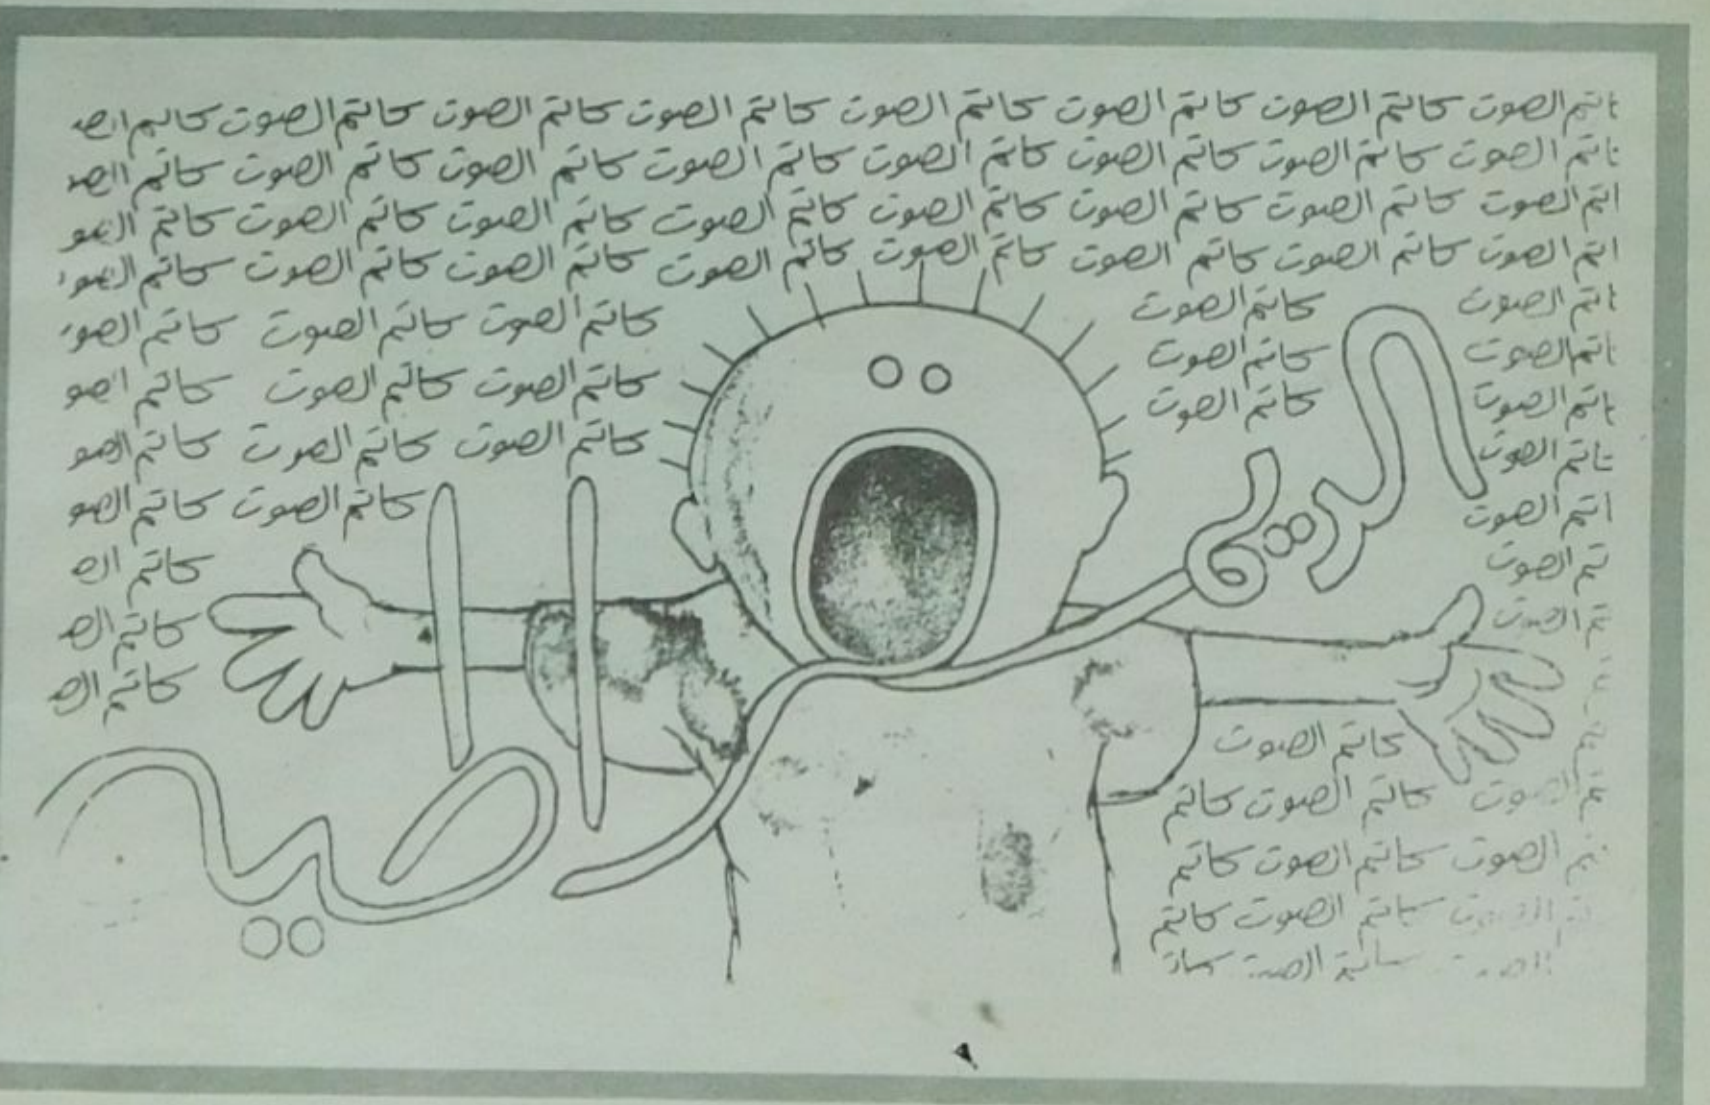 اتم الصوت كاتم الصوت كاتم الصوت كاتم الصوت كاتم الصوت كاتم الصوت كاتم الصوت كاتم الص
اتم الصوت كاتم الصوت كاتم الصوت كاتم الصوت كاتم الصوت كاتم الصوت كاتم الصوت كاتم الص
اتم الصوت كاتم الصوت كاتم الصوت كاتم الصوت كاتم الصوت كاتم الصوت كاتم الصوت كاتم الصو
اتم الصوت كاتم الصوت كاتم الصوت كاتم الصوت كاتم الصوت كاتم الصوت كاتم الصوت كاتم الصو
اتم الصوت كاتم الصوت كاتم الصوت كاتم الصوت كاتم الصو
اتم الصوت كاتم الصوت كاتم الصوت كاتم الصوت كاتم الصو
اتم الصوت كاتم الصوت كاتم الصوت كاتم الصوت كاتم الصو
اتم الصوت كاتم الصوت كاتم الصو
اتم الصوت كاتم الص
تم الصوت كاتم الص
تم الصوت كاتم الص
كاتم الصوت
تم الصوت كاتم الصوت كاتم
تم الصوت كاتم الصوت كاتم
كاتم الصوت كاتم